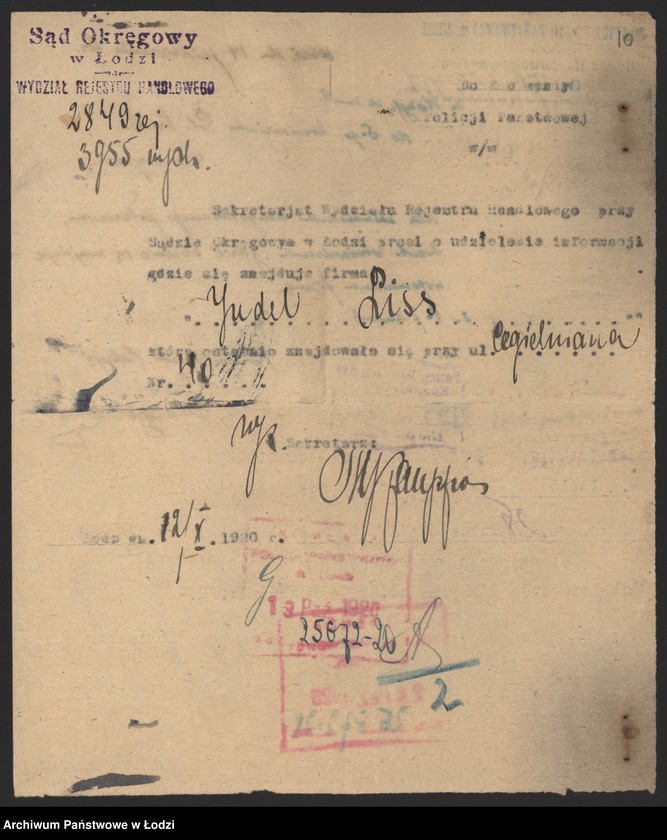 10
Sąd Okręgowy
w Łodzi
WYDZIAŁ REJESTRU HANDLOWEGO
2849 rej.
3955 wych.
Policji Państwowej
w/m
Sekretarjat Wydziału Rejestru Handlowego przy
Sądzie Okręgowym w Łodzi prosi o udzielenie informacji
gdzie się znajduje firma
"Judel Liss"
która ostatnio znajdowała się przy ul. Cegielniana
Nr. 40
Sekretarz:
Łódź dn. 12/X.1920 r.
13 Paź 1920
25672-20
2
Archiwum Państwowe w Łodzi